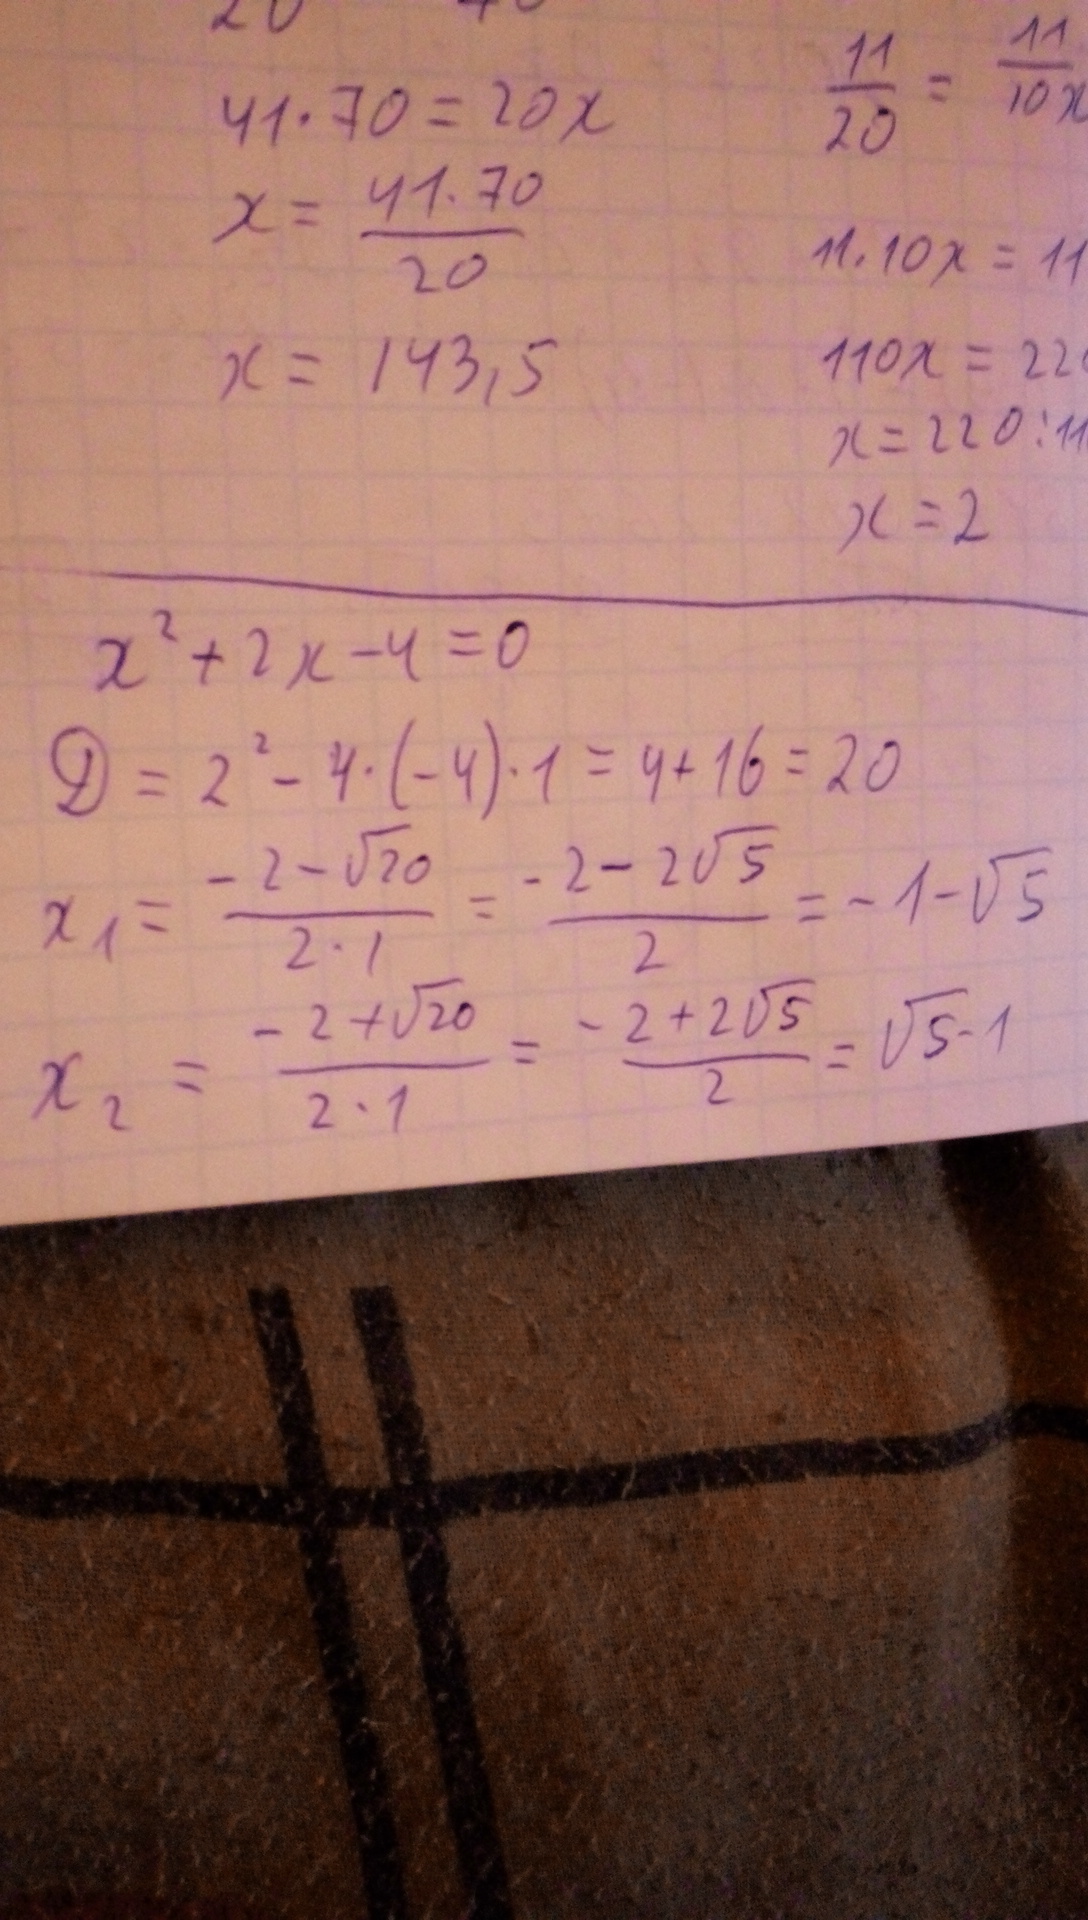 41·70=20x
x = 41·70/20
x = 143,5
11/20 = 11/10x
11·10x = 11
110x = 220
x = 220:11
x = 2
x² + 2x - 4 = 0
D = 2² - 4·(-4)·1 = 4+16 = 20
x₁ = (-2-√20)/(2·1) = (-2-2√5)/2 = -1-√5
x₂ = (-2+√20)/(2·1) = (-2+2√5)/2 = √5-1